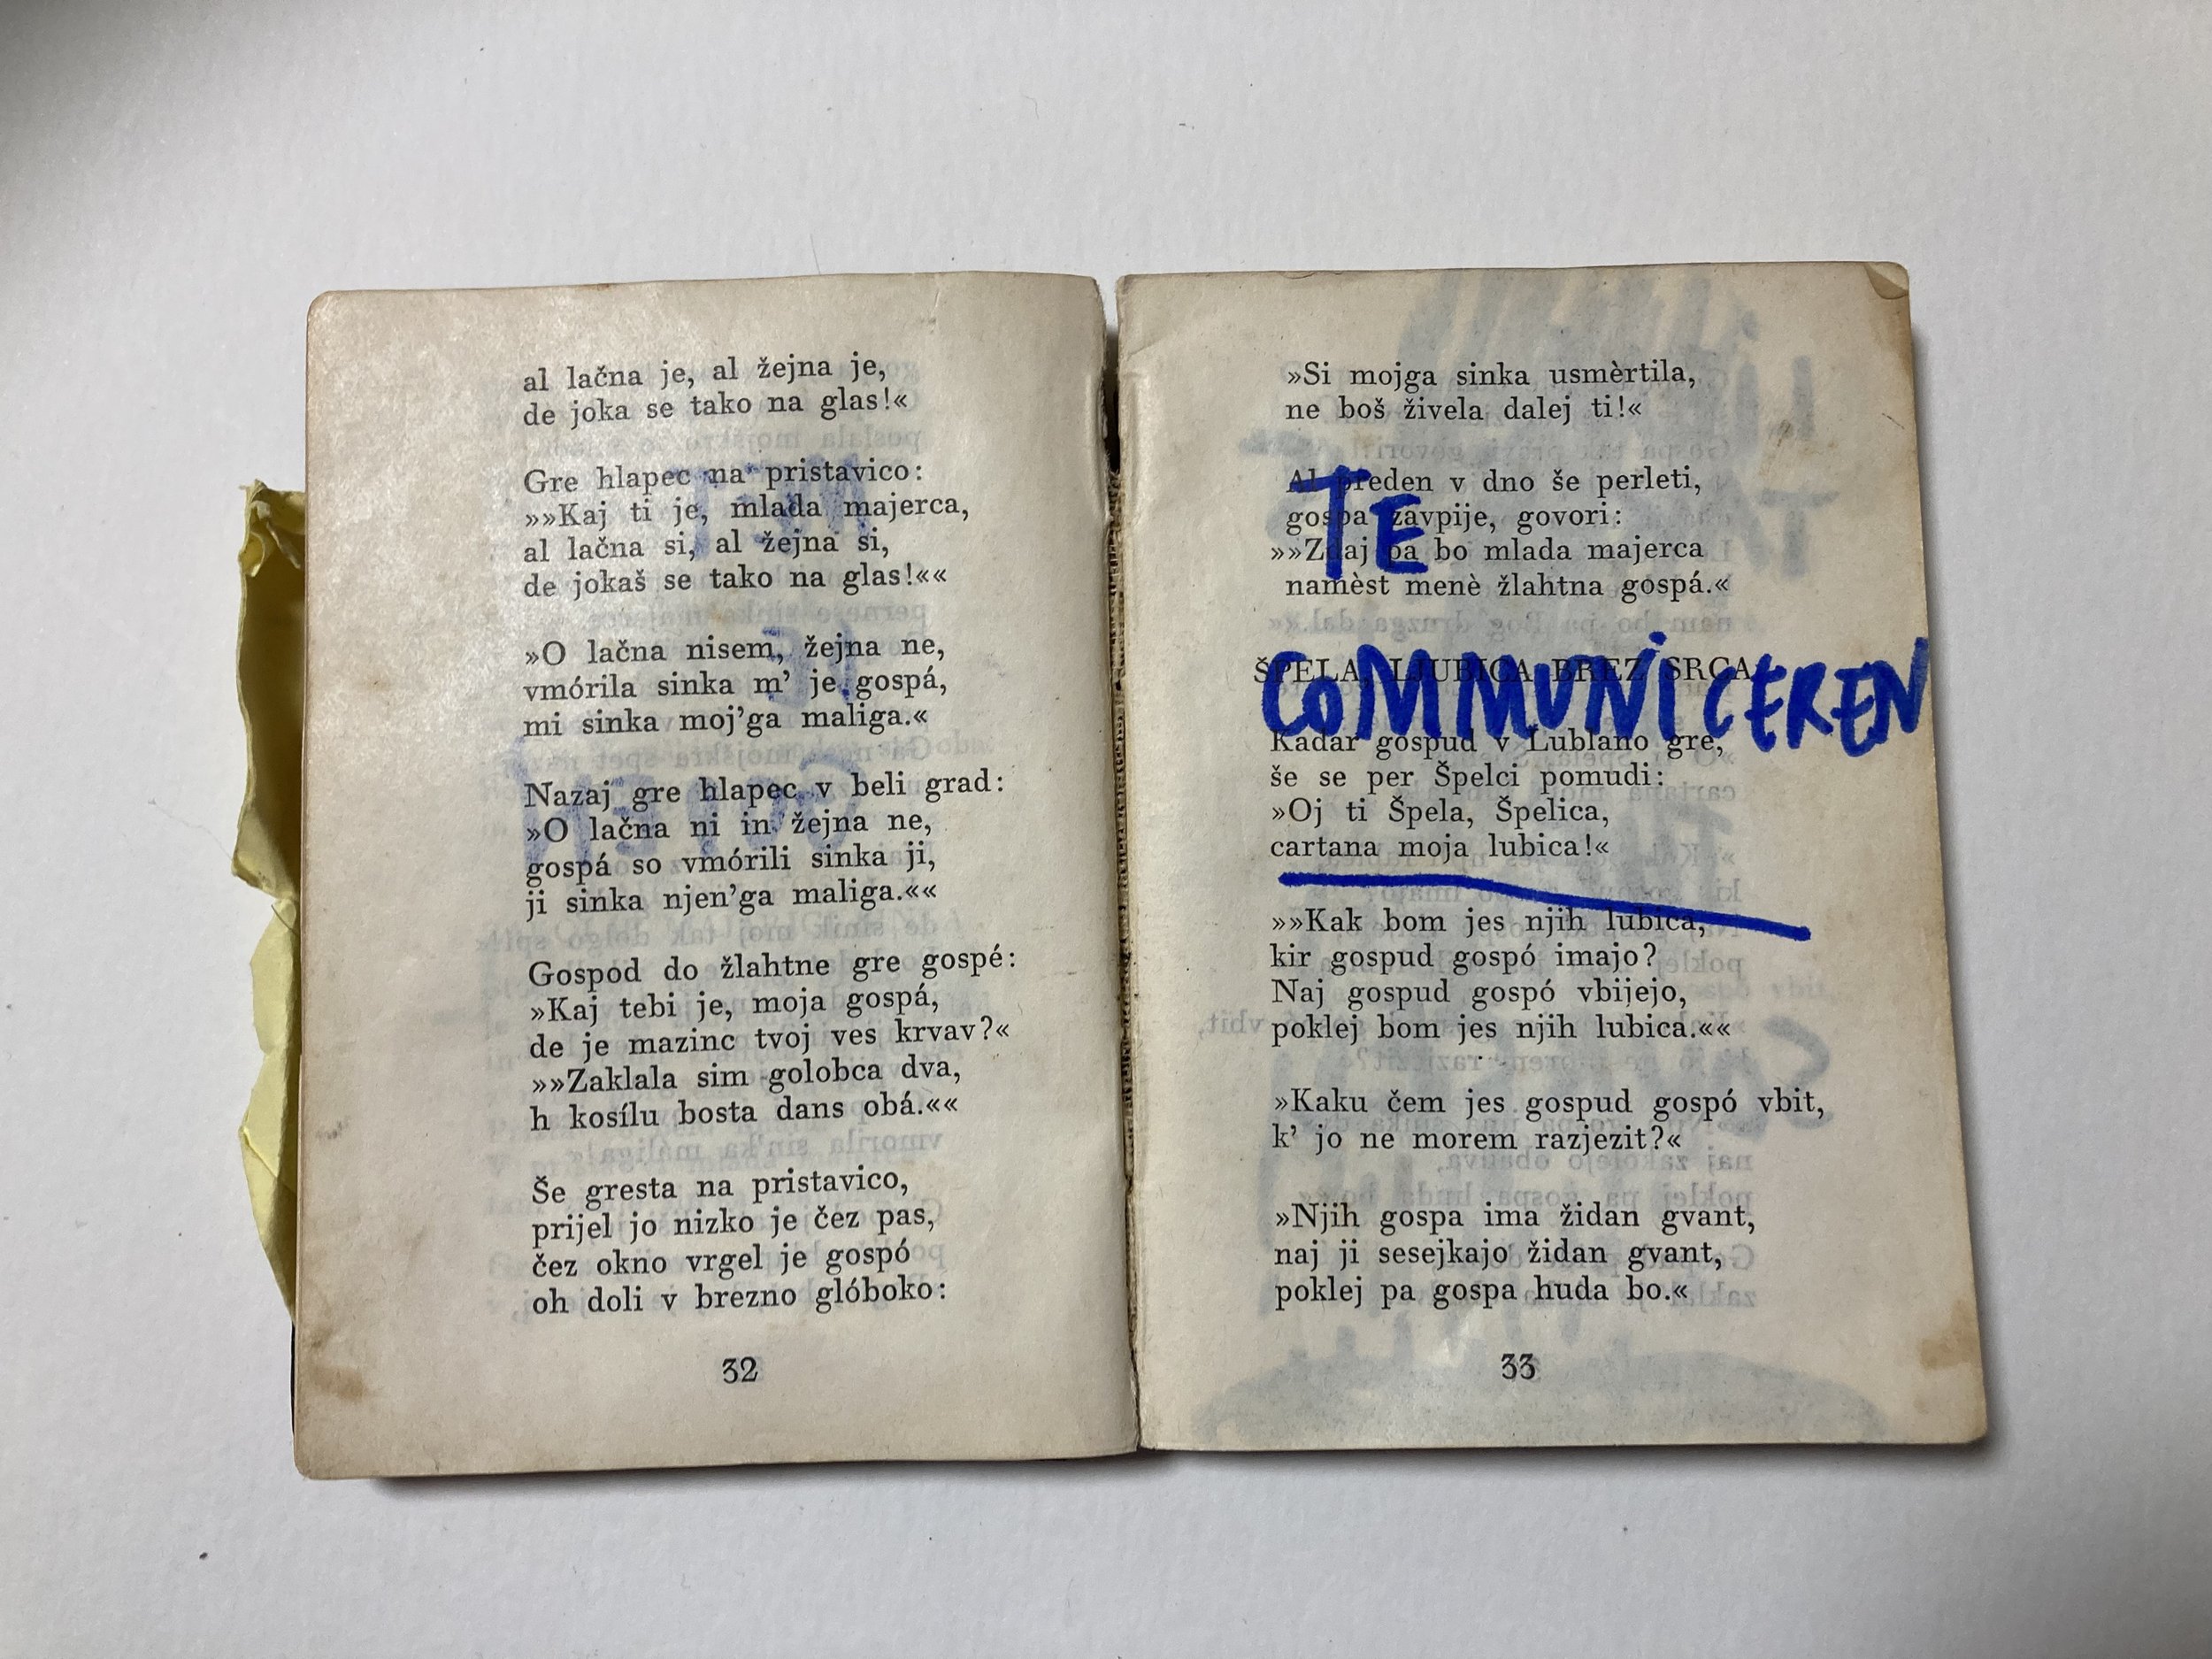 al lačna je, al žejna je,
de joka se tako na glas!«
Gre hlapec na pristavico:
»»Kaj ti je, mlada majerca,
al lačna si, al žejna si,
de jokaš se tako na glas!««
»O lačna nisem, žejna ne,
vmórila sinka m’ je gospá,
mi sinka moj’ga maliga.«
Nazaj gre hlapec v beli grad:
»O lačna ni in žejna ne,
gospá so vmórili sinka ji,
ji sinka njen’ga maliga.««
Gospod do žlahtne gre gospé:
»Kaj tebi je, moja gospá,
de je mazinc tvoj ves krvav?«
»»Zaklala sim golobca dva,
h kosílu bosta dans obá.««
Še gresta na pristavico,
prijel jo nizko je čez pas,
čez okno vrgel je gospó
oh doli v brezno glóboko:
32
»Si mojga sinka usmèrtila,
ne boš živela dalej ti!«
Al preden v dno še perleti,
gospa zavpije, govori:
»»Zdaj pa bo mlada majerca
namèst menè žlahtna gospá.«
TE
COMMUNICEREN
ŠPELA, LJUBICA BREZ SRCA
Kadar gospud v Lublano gre,
še se per Špelci pomudi:
»Oj ti Špela, Špelica,
cartana moja lubica!«
»»Kak bom jes njih lubica,
kir gospud gospó imajo?
Naj gospud gospó vbijejo,
poklej bom jes njih lubica.««
»Kaku čem jes gospud gospó vbit,
k’ jo ne morem razjezit?«
»Njih gospa ima židan gvant,
naj ji sesejkajo židan gvant,
poklej pa gospa huda bo.«
33